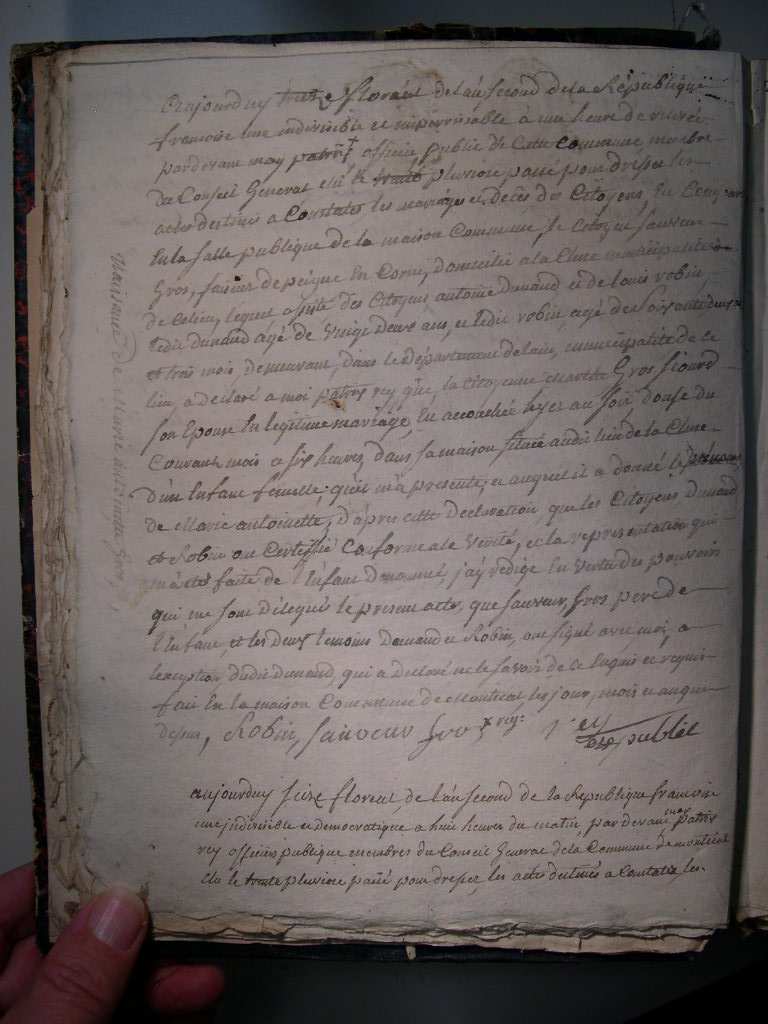 aujourduy treize floreal de l'an second de la République
francoise une indivisible et imperissable a une heure de relevée
pardevant moy officier public de Cette Commune, membre
du Conseil General elu le pluviose passé pour dresser les
actes destinés a Constater les mariages et décès des Citoyens, Est Comparu
En la salle publique de la maison Commune, le Citoyen sauveur
Gros, faiseur de peigne En Corne, domicilié a la Cluse municipalité
de Ceslieu, lequel assisté des Citoyens antoine Dunand et de louis robin,
ledit dunand agé de Vingt deux ans, et ledit robin, agé de soixante
et trois mois, demeurant, dans le département de lain, municipalité de ce
lieu, a declaré a moi patras rey que, la Citoyenne Gros
son Epouse En legitime mariage, Est accouchée hyer au soir douse du
Courant mois a six heures, dans sa maison située audit lieu de la Cluse
D'un Enfant femelle qu'il m'a presenté, et auquel il a donné le prénom
de Marie antoinette, d'après cette declaration que les Citoyens Dunand
et Robin ont Certiffié Conforme a la Vérité, et la representation qui
m'a été faite de l'Enfant denommé, j'ay rédigé En vertu des pouvoirs
qui me sont délegués le present acte, que sauveur Gros pere de
l'Enfant, et les deux temoins Dunand et Robin, ont signé avec moi, a
lexception dudit dunand, qui a declaré ne le savoir de ce Enquis et requis
fait En la maison Commune de Montreal les jour, mois et an que
dessus, Robin, sauveur Gros rey
off publiet
naissance de Marie antoinette Gros,
aujourduy floreal de l'an second de la République francoise
une indivisible et democratique a huit heures du matin, pardevant moy patras
rey officier publique membres du Conseil General de la Commune de montreal
elu le trente pluviose passé pour dresser, les actes destinés a Constater, les